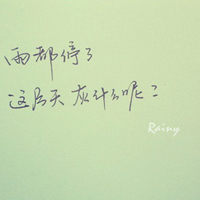 雨都停了
这片天 灰什么呢？
Rainy